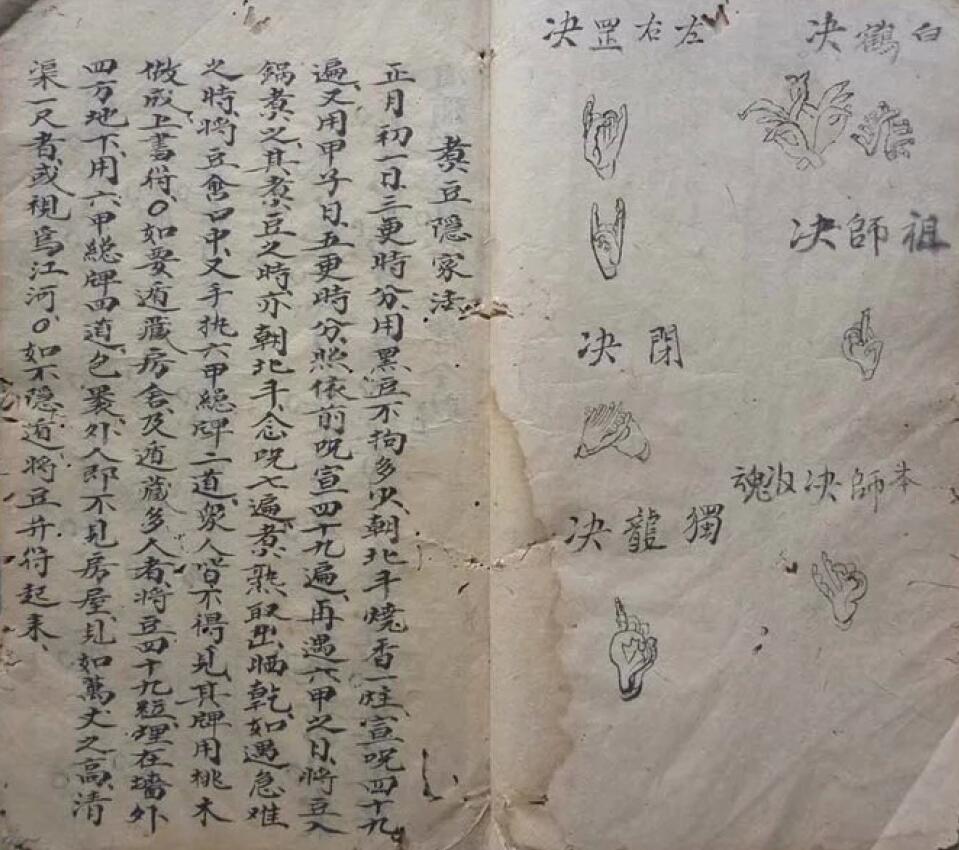 白鶴决
祖師决
本師决收魂
左右罡决
閉决
獨龍决
煑豆隱家法
正月初一日、三更時分、用黑豆不拘多少、朝北斗燒香一炷、宣呪四十九
遍、又用甲子日、五更時分、照依前呪、宣四十九遍、再遇六甲之日、將豆入
鍋煑之、其煑豆之時、亦朝北斗、念呪七遍、煑熟取出、晒乾、如遇急难
之時、將豆含口中、又手执六甲總牌二道、衆人皆不得見、其牌用桃木
做成、上書符、○如要遁藏房舍、及遁藏多人者、將豆四十九粒、埋在墻外
四方地下、用六甲總牌四道、包裹、外人即不見房屋、見如萬丈之高、清
渠一尺者、或視為江河、○如不隱遁、將豆并符起来、